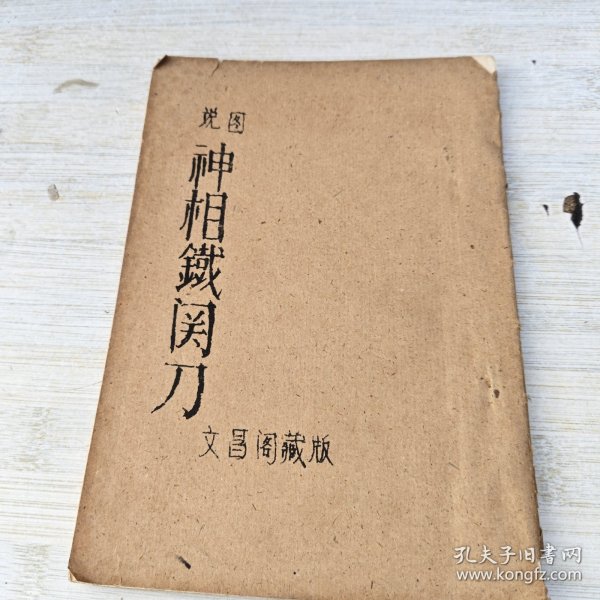 図说
神相鐵関刀
文昌阁藏版
孔夫子旧書网
www.kongfz.com